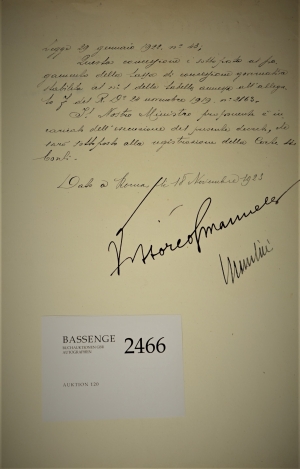 Legge 29 gennaio 1922, nº 40.
Questa concessione è sottoposta al pa-
gamento della tassa di concessione governativa
stabilita al nº 1 della tabella annessa all'allega-
to F del R. Dº 20 novembre 1919 nº 2163.
Il Nostro Ministro proponente è in-
caricato dell'esecuzione del presente decreto, che
sarà sottoposto alla registrazione della Corte dei
Conti.
Dato a Roma, li 18 Novembre 1923
Vittorio Emanuele
BASSENGE
BUCHAUKTIONEN
AUTOGRAPHEN
2466
AUKTION 120